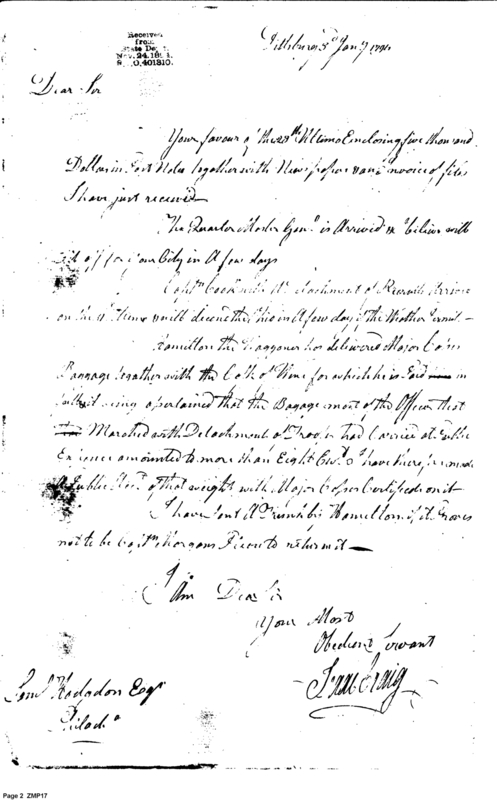 Received
from
State Dept.
Nov. 24, 1894
R. & P. 401310.
Pittsburg 3d Jany 1794
Dear Sir
Your favour of the 28th Ultimo Enclosing five thousand
Dollars in Post Notes together with Newspaper & an Invoice of files
I have just received
The Quarter Master Genl. is Arrived & believe will
Set off for your City in A few days
Captn. Cook with A detachment of Recruits Arrived
on the will descend the Ohio in A few days if the Weather Permit
Hamilton the Waggoner has delivered Major
Baggage together with the Cask of Wine for which he is Paid in
full it being ascertained that the Bagage most of the Officers that
Marched with Detachment of Troops had Carried at Public
Expence amounted to more than Eight Cwt. I have therefore made
A Public of that weight with Major Certificate on it
I have Sent A Trunk by Hamilton if it Proves
not to be Captn. Morgans to return it
I Am Dear Sir
Your Most
Obedient Servant
Isaac Craig
Saml Hodgdon Esqr
Philada
Page 2 ZMP17